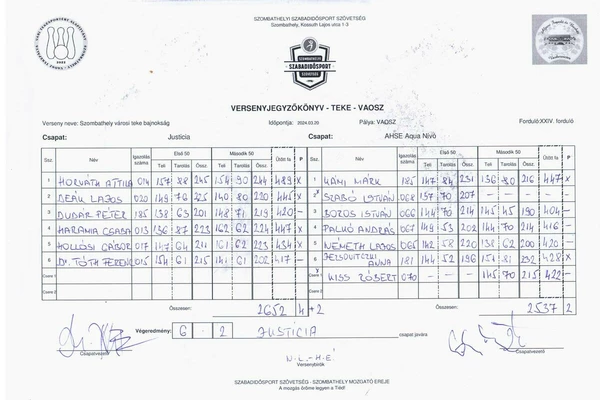 SZOMBATHELYI SZABADIDŐSPORT SZÖVETSÉG
Szombathely, Kossuth Lajos utca 1-3
SZOMBATHELYI
SZABADIDŐSPORT
SZÖVETSÉG
VERSENYJEGYZŐKÖNYV - TEKE - VAOSZ
Verseny neve: Szombathely városi teke bajnokság Időpontja: 2024.03.20 Pálya: VAOSZ Forduló: XXIV. forduló
Csapat: Justicia Csapat: AHSE Aqua Nívó
Ssz. Név Igazolás száma Első 50 Második 50 Ütött fa P Ssz. Név Igazolás száma Első 50 Második 50 Ütött fa P
Teli Tarolás Össz. Teli Tarolás Össz. Teli Tarolás Össz. Teli Tarolás Össz.
1 HORVÁTH ATTILA 014 157 88 245 154 90 244 489 X 1 KÁMI MÁRK 185 147 84 231 136 80 216 447 X
2 DEÁK LAJOS 020 149 76 225 140 80 220 445 X 2 SZABÓ ISTVÁN 068 137 70 207 - - -
3 DUDÁR PÉTER 185 138 63 201 148 71 219 420 - 3 BOROS ISTVÁN 066 144 70 214 145 45 190 404 -
4 HARANIA CSABA 013 136 87 223 162 62 224 447 X 4 PALKÓ ANDRÁS 067 149 53 202 144 70 214 416 -
5 HOLLÓSI GÁBOR 017 147 64 211 161 62 223 434 X 5 NÉMETH LAJOS 065 142 58 220 138 62 200 420 -
6 Dr. TÓTH FERENC 015 154 61 215 141 61 202 417 - 6 ANNA 181 144 52 196 151 81 232 428 X
Csere 1 Csere 1 KISS RÓBERT 070 - - 145 70 215 422 -
Csere 2 Csere 2
Összesen: 2652 4+2 Összesen: 2537 2
Végeredmény: 6 - 2 JUSTICIA csapat javára
Csapatvezető Csapatvezető
N.L.-H.É.
Versenybírók
SZABADIDŐSPORT SZÖVETSÉG - SZOMBATHELY MOZGATÓ EREJE
A mozgás öröme legyen a Tiéd!